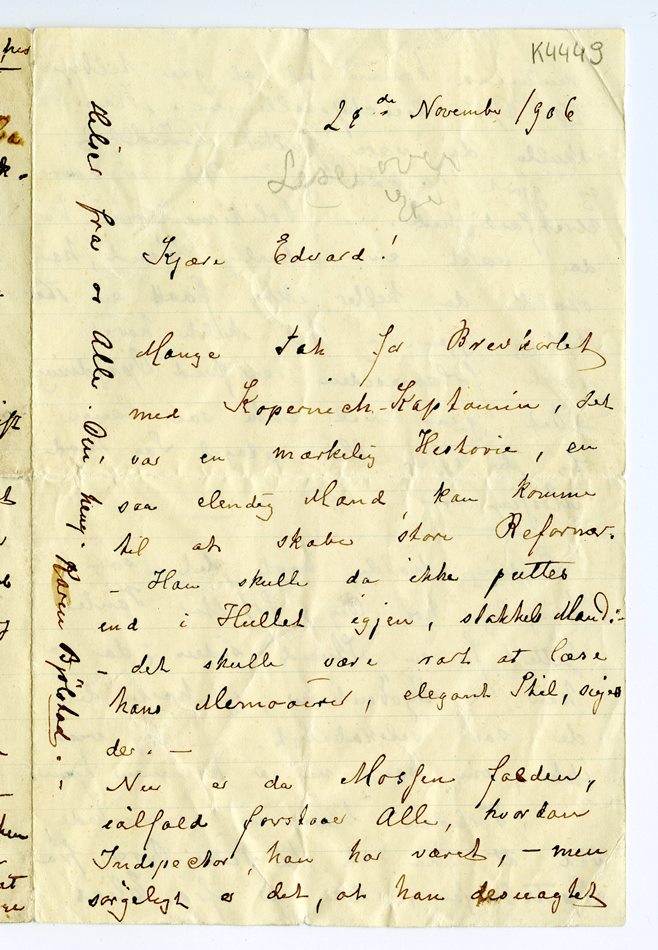 K4449
29de November 1906
Læst over
Kjære Edvard!
Mange Tak for Brevkortet
med Kopernich-Kaptainin, det
var en mærkelig Hestorie, en
saa elendig Mand kan komme
til at skabe store Reformer.
– Han skulle da ikke puttes
ind i Hullet igjen, stakkels Mand:-
- det skulle være rart at læse
hans Memoairer, elegant Stil, siges
der. —
Nu er da Mossfen falden,
ialfald forstaar Alle, hvordan
Indspector han har været, – men
sørgeligt er det, at han desuagtet
Hilser fra os Alle. Din heng. Karen Bjølstad. -